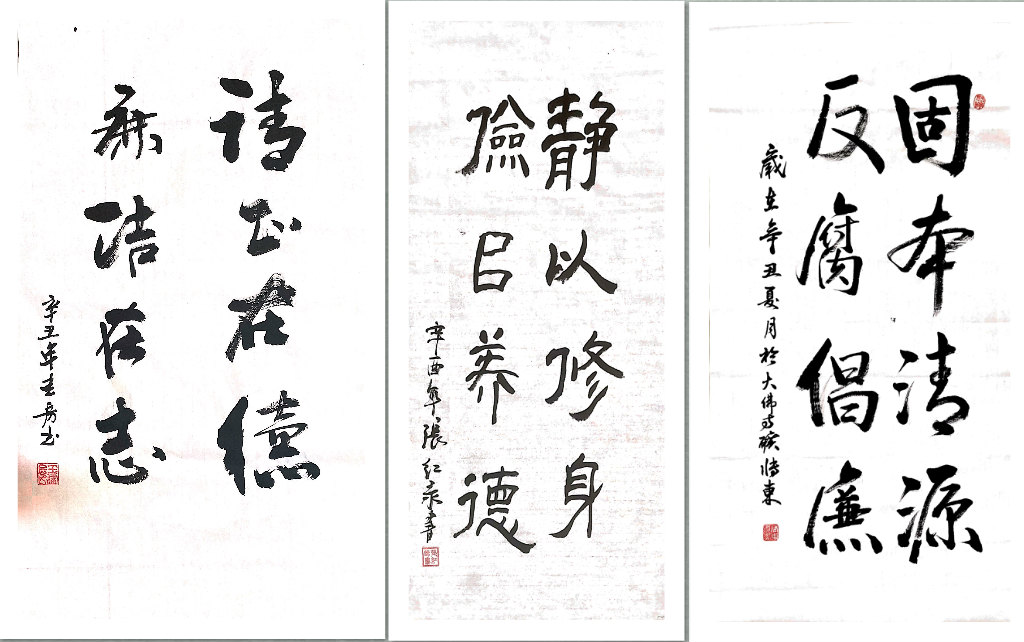 清正在德
廉洁在志
辛丑年
静以修身
儉㠯养德
辛酉年張红書
固本清源
反腐倡廉
歲在辛丑夏月於大佛寺礦